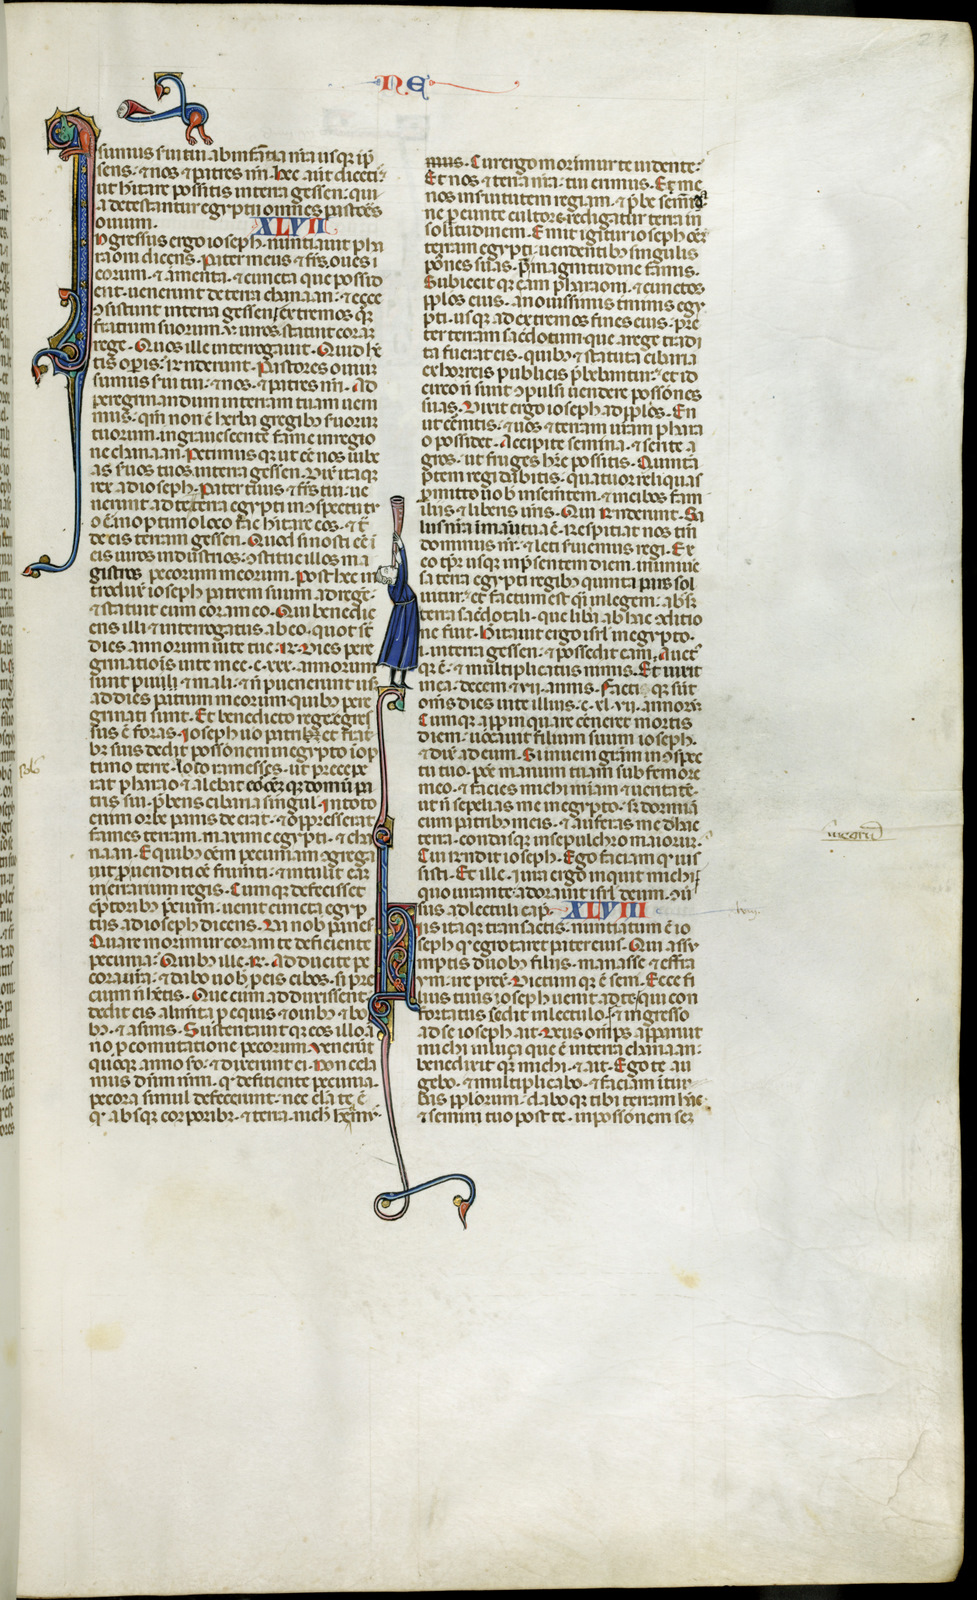 N E
21
sumus serui tui ab infãtia nr̃a usq̃ in p̃
sens · ⁊ nos ⁊ patres nr̃i. hec aũt dicetis
ut hĩtare possitis in terra gessen. quia
detestantur egyptii omnes pastores
ouium.
XLVII
Ingressus ergo ioseph. nuntiauit pha
raoni dicens. Pater meus ⁊ fr̃es. oues i
eorum. ⁊ armenta. ⁊ cuncta que possid
ent. uenerunt de terra chanaan. ⁊ ecce
ɔsistunt in terra gessen. extremos q̃
fratrum suorum .v. uiros statuit corã
rege. Quos ille interrogauit. Quid hẽ
tis op̃is. R̃nderunt. Pastores ouium
sumus serui tui. ⁊ nos. ⁊ patres nr̃i. Ad
peregrinandum in terram tuam ueni
mus. qm̃ non ẽ herba gregibꝫ seruorum
tuorum. ingrauescente fame in regio
ne chanaan. Petimusque ut eẽ nos iube
as seruos tuos in terra gessen. Dix̃ itaq̃
rex ad ioseph. Pater tuus ⁊ fr̃es tui. ue
nerunt ad te. terra egypti in ɔspectu tu
o ẽ. in optimo loco fac hĩtare eos. ⁊ t̃
de eis terram gessen. Quod si nosti eẽ i
eis uiros industrios. ɔstitue illos ma
gistros pecorum meorum. Post hec in
troduxit ioseph patrem suum ad regẽ.
⁊ statuit eum coram eo. Qui benedic
ens illi. ⁊ interrogatus ab eo. quot st̃
dies annorum uite tue. R̃. Dies pere
grinatiois uite mee .c.xxx. annorum
sunt parui ⁊ mali. ⁊ ñ puenerunt us̃
ad dies patrum meorum. quibꝫ pere
grinati sunt. Et benedicto rege. egres
sus ẽ foras. Ioseph uo patri ⁊ fratri
bꝫ suis dedit possõnem in egypto i op
timo terre. loco ramesses. ut precepe
rat pharao. ⁊ alebat eos. oẽmque domũ pa
tris sui. p̃bens cibaria singul. In toto
enim orbe panis deerat. ⁊ oppresserat
fames terram. maxime egypti. ⁊ cha
naan. E quibꝫ oẽm pecuniam ɔgrega
uit. p uenditiõe frumti. ⁊ intulit eã i
in erarium regis. Cumque defecisset
eptoribꝫ pretium. uenit cuncta egyp
tus ad ioseph dicens. Da nob panes.
Quare morimur coram te deficiente
pecunia. Quibꝫ ille. R̃. Adducite pe
cora ur̃a. ⁊ dabo uob p eis cibos. si pre
cium ñ hẽtis. Que cum adduxissent.
dedit eis alim̃ta p equis ⁊ ouibꝫ ⁊ bo
bꝫ. ⁊ asinis. Sustentauitque eos illo a
no p cõmutatione pecorum. Venerũt
quoq̃ anno sc̃o. ⁊ dixerunt ei. Non cela
mus dñum nr̃m. qd̃ deficiente pecunia.
pecora simul defecerunt. nec clã te ẽ
qd̃ absque corporibꝫ. ⁊ terra. nich̃ hẽam
mus. Cur ergo morimur te uidente.
Et nos ⁊ terra nr̃a. tui erimus. Eme
nos in seruitutem regiam. ⁊ p̃be semĩa
ne pereunte cultore. redigatur terra in
solitudinem. Emit igitur ioseph oẽm
terram egypti. uendentibꝫ singulis
põnes suas. p̃ magnitudine famis.
Subiecitque eam pharaoni. ⁊ cunctos
pplõs eius. a nouissimis t̃minis egy
pti. usq̃ ad extremos fines eius. pre
ter terram sac̃dotum. que a rege tradi
ta fuerat eis. quibꝫ ⁊ statuta cibaria
ex horreis publicis p̃bebantur. ⁊ id
circo ñ sunt ɔpulsi uendere possõnes
suas. Dixit ergo ioseph ad pplõs. En
ut cernitis. ⁊ uos ⁊ terram ur̃am phara
o possidet. Accipite semina. ⁊ serite a
gros. ut fruges hẽre possitis. Quintã
p̃tem regi dabitis. quatuor reliquas
p̃mitto uob in sem̃tem. ⁊ in cibos fam
iliis ⁊ liberis ur̃is. Qui R̃nderunt. Sa
lus nr̃a in manu tua ẽ. Respiciat nos tm̃
dominus nr̃. ⁊ leti seruiemus regi. Ex
eo tp̃r. usq̃ in p̃sentem diem. in uniue
sa terra egypti regibꝫ quinta pars sol
uitur. et factum est q̃i in legem. absq̃
terra sac̃dotali. que lib̃a ab hac ɔditio
ne fuit. Hĩtauit ergo isrl̃ in egypto.
i. in terra gessen. ⁊ possedit eam. Auct
q̃ ẽ. ⁊ multiplicatus nimis. Et uixit
in ea. decem ⁊ vii. annis. Factique sũt
om̃s dies uite illius .c.xl.vii. annorũ.
Cumque appinquare cerneret mortis
diem. uocauit filium suum ioseph.
⁊ dix̃ ad eum. Si inueni grãm in ɔspec
tu tuo. pone manum tuam sub femore
meo. ⁊ facies michi miam ⁊ ueritatẽ.
ut ñ sepelias me in egypto. sꝫ dormiã
cum patribꝫ meis. ⁊ auferas me de hac
terra. condasque in sepulchro maiorum.
Cui R̃ndit ioseph. Ego faciam q̃ ius
sisti. Et ille. iura ergo inquit michi.
quo iurante. adorauit isrl̃ deum. ɔu
sus ad lectuli cap̃.
XLVIII
His itaque transactis. nuntiatum ẽ io
seph qd̃ egrotaret pater eius. Qui assu
mptis duobꝫ filiis. manasse ⁊ effra
ym. ire prex̃. Dictum que ẽ seni. Ecce fi
lius tuus ioseph uenit ad te. qui con
fortatus sedit in lectulo. ⁊ ingresso
ad se ioseph ait. Deus omp̃s apparuit
michi in luza que ẽ in terra chanaan.
benedixitque michi. ⁊ ait. Ego te au
gebo. ⁊ multiplicabo. ⁊ faciam in tur
bas pplorum. daboque tibi terram hãc
⁊ semini tuo post te. in possõnem sez